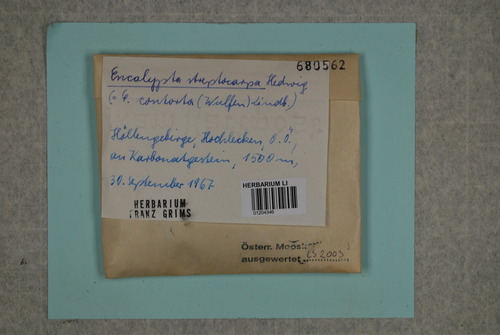 680562
Encalypta streptocarpa Hedwig
(= E. contorta (Wulfen) Lindb.)
Höllengebirge, Hochlecken, O.Ö.,
an Karbonatgestein, 1500 m,
30. September 1967
HERBARIUM
FRANZ GRIMS
HERBARIUM LI
01204346
Österr. Moos
ausgewertet 2003